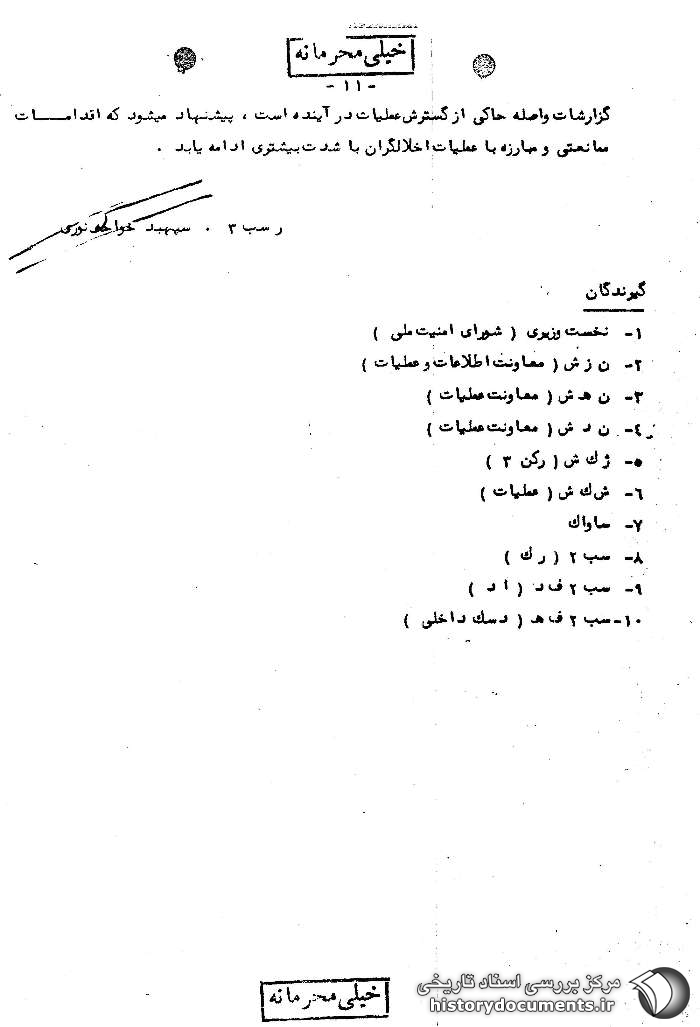 خیلی محرمانه
- ۱۱ -
گزارشات واصله حاکی از گسترش عملیات در آینده است ، پیشنهاد میشود که اقدامـــات
ممانعتی و مبارزه با عملیات اخلالگران با شدت بیشتری ادامه یابد .
ر سب ۳ . سپهبد خواجه نوری
گیرندگان
۱- نخست وزیری ( شورای امنیت ملی )
۲- ن ز ش ( معاونت اطلاعات و عملیات )
۳- ن هـ ش ( معاونت عملیات )
٤- ن د ش ( معاونت عملیات )
۵- ژ ك ش ( رکن ۳ )
٦- ش ك ش ( عملیات )
۷- ساواك
۸- سب ۲ ( ر ك )
۹- سب ۲ ف د ( ا د )
۱۰- سب ۲ ف هـ ( دسك داخلی )
خیلی محرمانه
مرکز بررسی اسناد تاریخی
historydocuments.ir